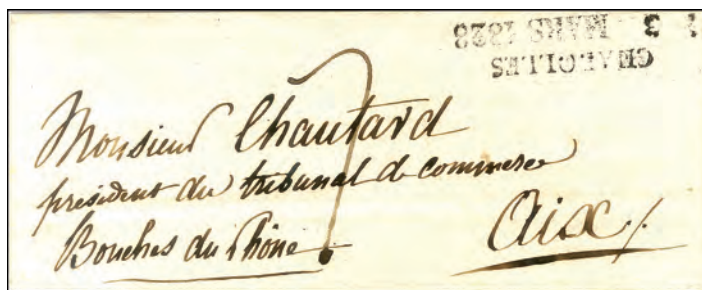 3
MARS 1828
CHAROLLES
Monsieur Chautard
président du tribunal de commerce
Bouches du Rhône Aix/